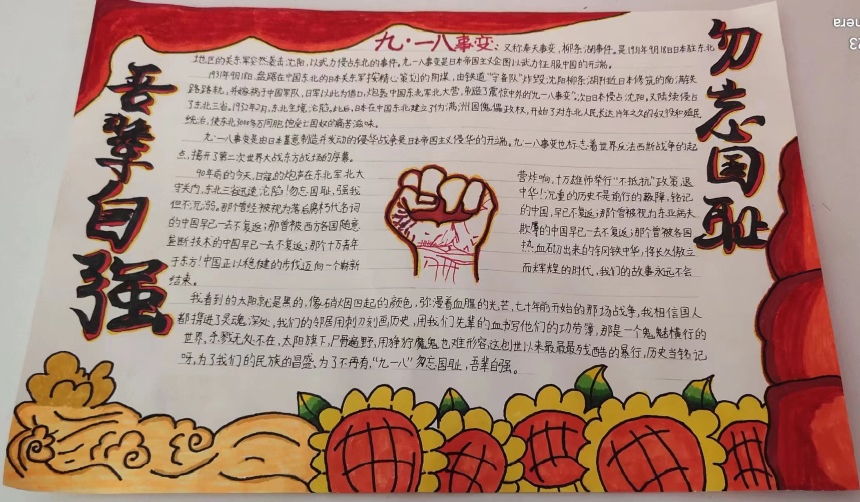 勿忘国耻
吾辈自强
九·一八事变：又称奉天事变，柳条湖事件。是1931年9月18日日本驻东北
地区的关东军突然袭击沈阳，以武力侵占东北的事件。九一八事变是日本帝国主义企图以武力征服中国的开端。
1931年9月18日，盘踞在中国东北的日本关东军按精心策划的阴谋，由铁道“守备队”炸毁沈阳柳条湖附近日本修筑的南满铁
路路轨，并嫁祸于中国军队，日军以此为借口，炮轰中国东北军北大营，制造了震惊中外的“九一八事变”。次日日本侵占沈阳，又陆续侵占
了东北三省。1932年2月，东北全境沦陷。此后，日本在中国东北建立了伪满洲国傀儡政权，开始了对东北人民长达14年之久的奴役和殖民
统治，使东北3000多万同胞饱受亡国奴的痛苦滋味。
九一八事变是由日本蓄意制造并发动的侵华战争是日本帝国主义侵华的开端。九一八事变也标志着世界反法西斯战争的起
点，揭开了第二次世界大战东方战场的序幕。
90年前的今天，日寇的炮声在东北军北大
营炸响，十万雄师奉行“不抵抗”政策，退
守关内，东北三省迅速沦陷！勿忘国耻，强我
中华！沉重的历史不是前行的羁绊，铭记
但不沉溺。那个曾经被视为落后腐朽代名词
的中国，早已不复返；那个曾被视为东亚病夫
的中国早已一去不复返；那曾被西方各国随意
欺辱的中国早已一去不复返；那个曾被各国
垄断技术的中国早已一去不复返；那个十万青年
热血砌出来的钢铁中华，将长久傲立
于东方！中国正以稳健的步伐迈向一个崭新
而辉煌的时代，我们的故事永远不会
结束。
我看到的太阳就是黑的，像硝烟四起的颜色，弥漫着血腥的光芒，七十年前开始的那场战争，我相信国人
都撞进了灵魂深处，我们的邻居用刺刀刻画历史，用我们先辈的血书写他们的功劳簿，那是一个鬼魅横行的
世界，杀戮无处不在，太阳旗下，尸骨遍野，用狰狞魔鬼也难形容这创世以来最最最残酷的暴行，历史当铭记
呀，为了我们的民族的昌盛，为了不再有，“九一八”勿忘国耻，吾辈自强。